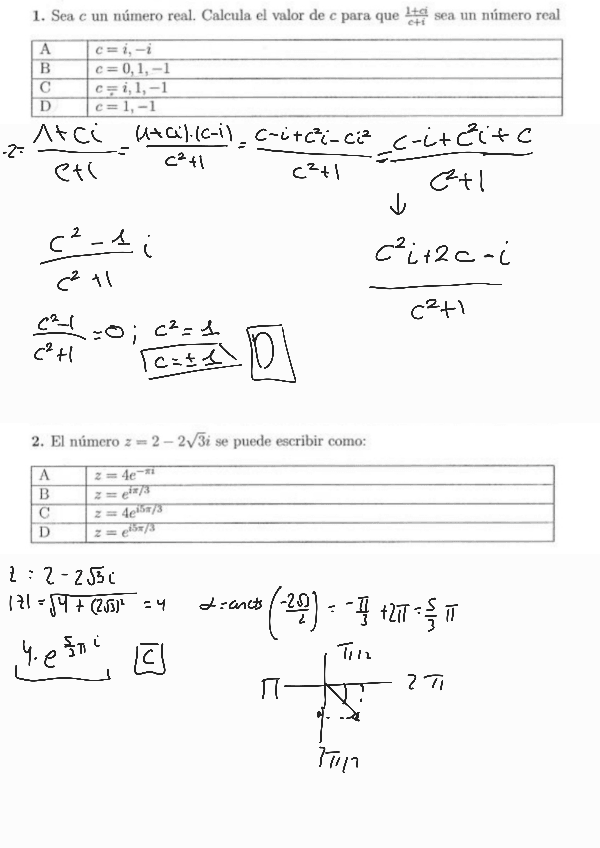 1. Sea c un número real. Calcula el valor de c para que \frac{1+ci}{c+i} sea un número real
A c = i, −i
B c = 0, 1, −1
C c = i, 1, −1
D c = 1, −1
\frac{1+ci}{c+i} = \frac{(1+ci)·(c-i)}{c²+1} = \frac{c-i+c²i-ci²}{c²+1} = \frac{c-i+c²i+c}{c²+1}
↓
\frac{c²-1}{c²+1} i \frac{c²i+2c-i}{c²+1}
\frac{c²-1}{c²+1} = 0 ; c² = 1
c = ± 1 D
2. El número z = 2 − 2√3i se puede escribir como:
A z = 4e^{−πi}
B z = e^{iπ/3}
C z = 4e^{i5π/3}
D z = e^{i5π/3}
z = 2 - 2√3 i
|z| = √(4 + (2√3)²) = 4 α = arctg (\frac{-2√3}{2}) = -\frac{π}{3} + 2π = \frac{5}{3} π
4·e^{\frac{5}{3}π i} C
π/2
π 2π
3π/2